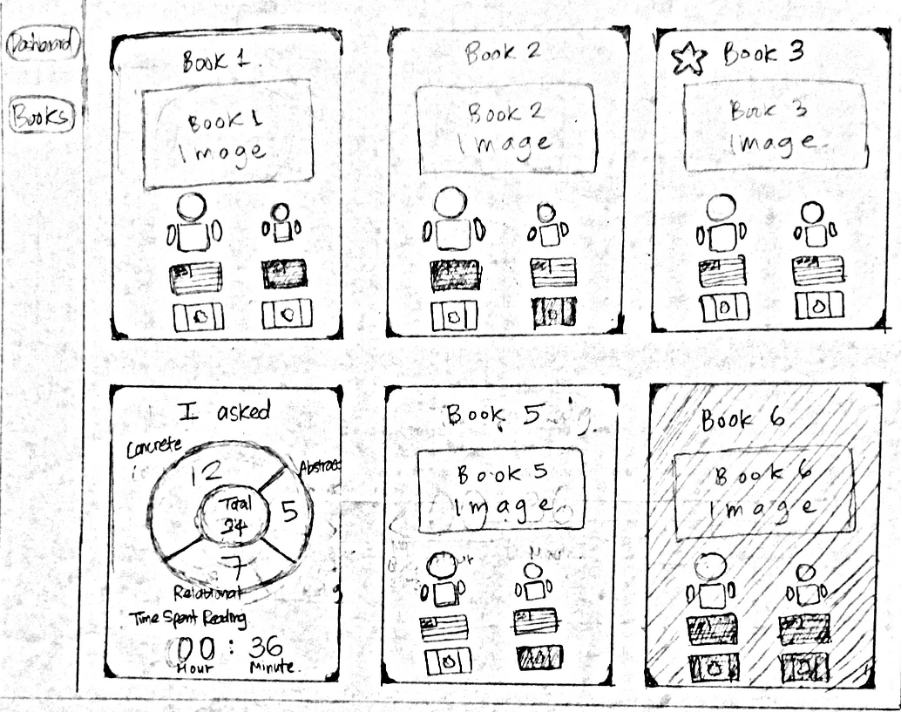 Dashboard
Books
Book 1.
Book 1
Image
Book 2
Book 2
Image
Book 3
Book 3
Image
I asked
Concrete
12
Abstract
5
Total
24
7
Relational
Time Spent Reading
00 : 36
Hour Minute.
Book 5
Book 5
Image
Book 6
Book 6
Image